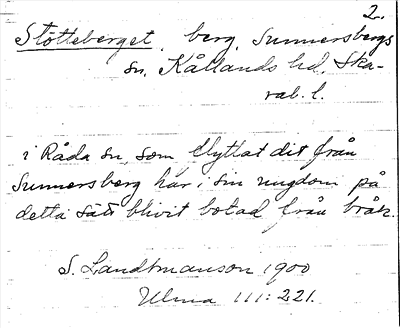 2.
Stötteberget, berg, Sunnersbergs
sn, Kållands hd, Ska-
rab. l.
i Råda sn, som flyttat dit från
Sunnersberg har i sin ungdom på
detta sätt blivit botad från bråck.
S. Landtmanson 1900
Ulma 111:221.